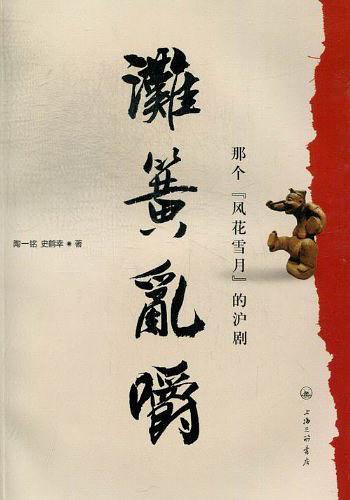 灘簧亂嚼
那个『风花雪月』的沪剧
陶一铭 史鹤幸 著
上海三联书店